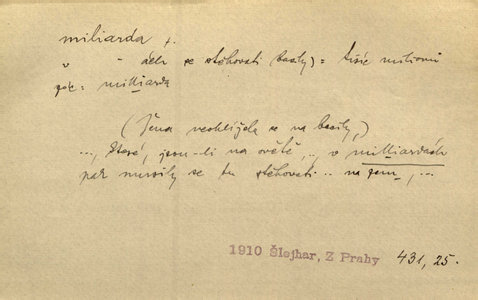 miliarda f.
" " aěr se stěhovati bacily) = tisíc milionů
psč: milliarda
(Žena neohlížela se na bacily,)
..., které, jsou-li na světě, .., v milliardách
pak musily se tu stěhovati .. na zem, ...
1910 Šlejhar, Z Prahy 431, 25.